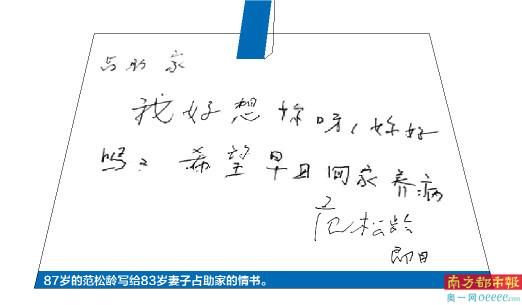 占助家
我好想妳呀，妳好
吗？希望早日回家养病
范松龄
即日
87岁的范松龄写给83岁妻子占助家的情书。
南方都市报
奥一网 oeeee.com